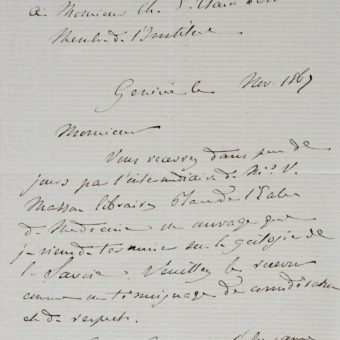 a Monsieur Ch.
Membre de l'Institut
Genève le Nov. 1867
Monsieur
Vous recevrez dans peu de
jours par l'intermédiaire de Mr. V.
Masson libraire, Place de l'Ecole
de Medecine un ouvrage que
je viens de terminer sur la géologie de
la Savoie. Veuillez le recevoir
comme un témoignage de considération
et de respect.